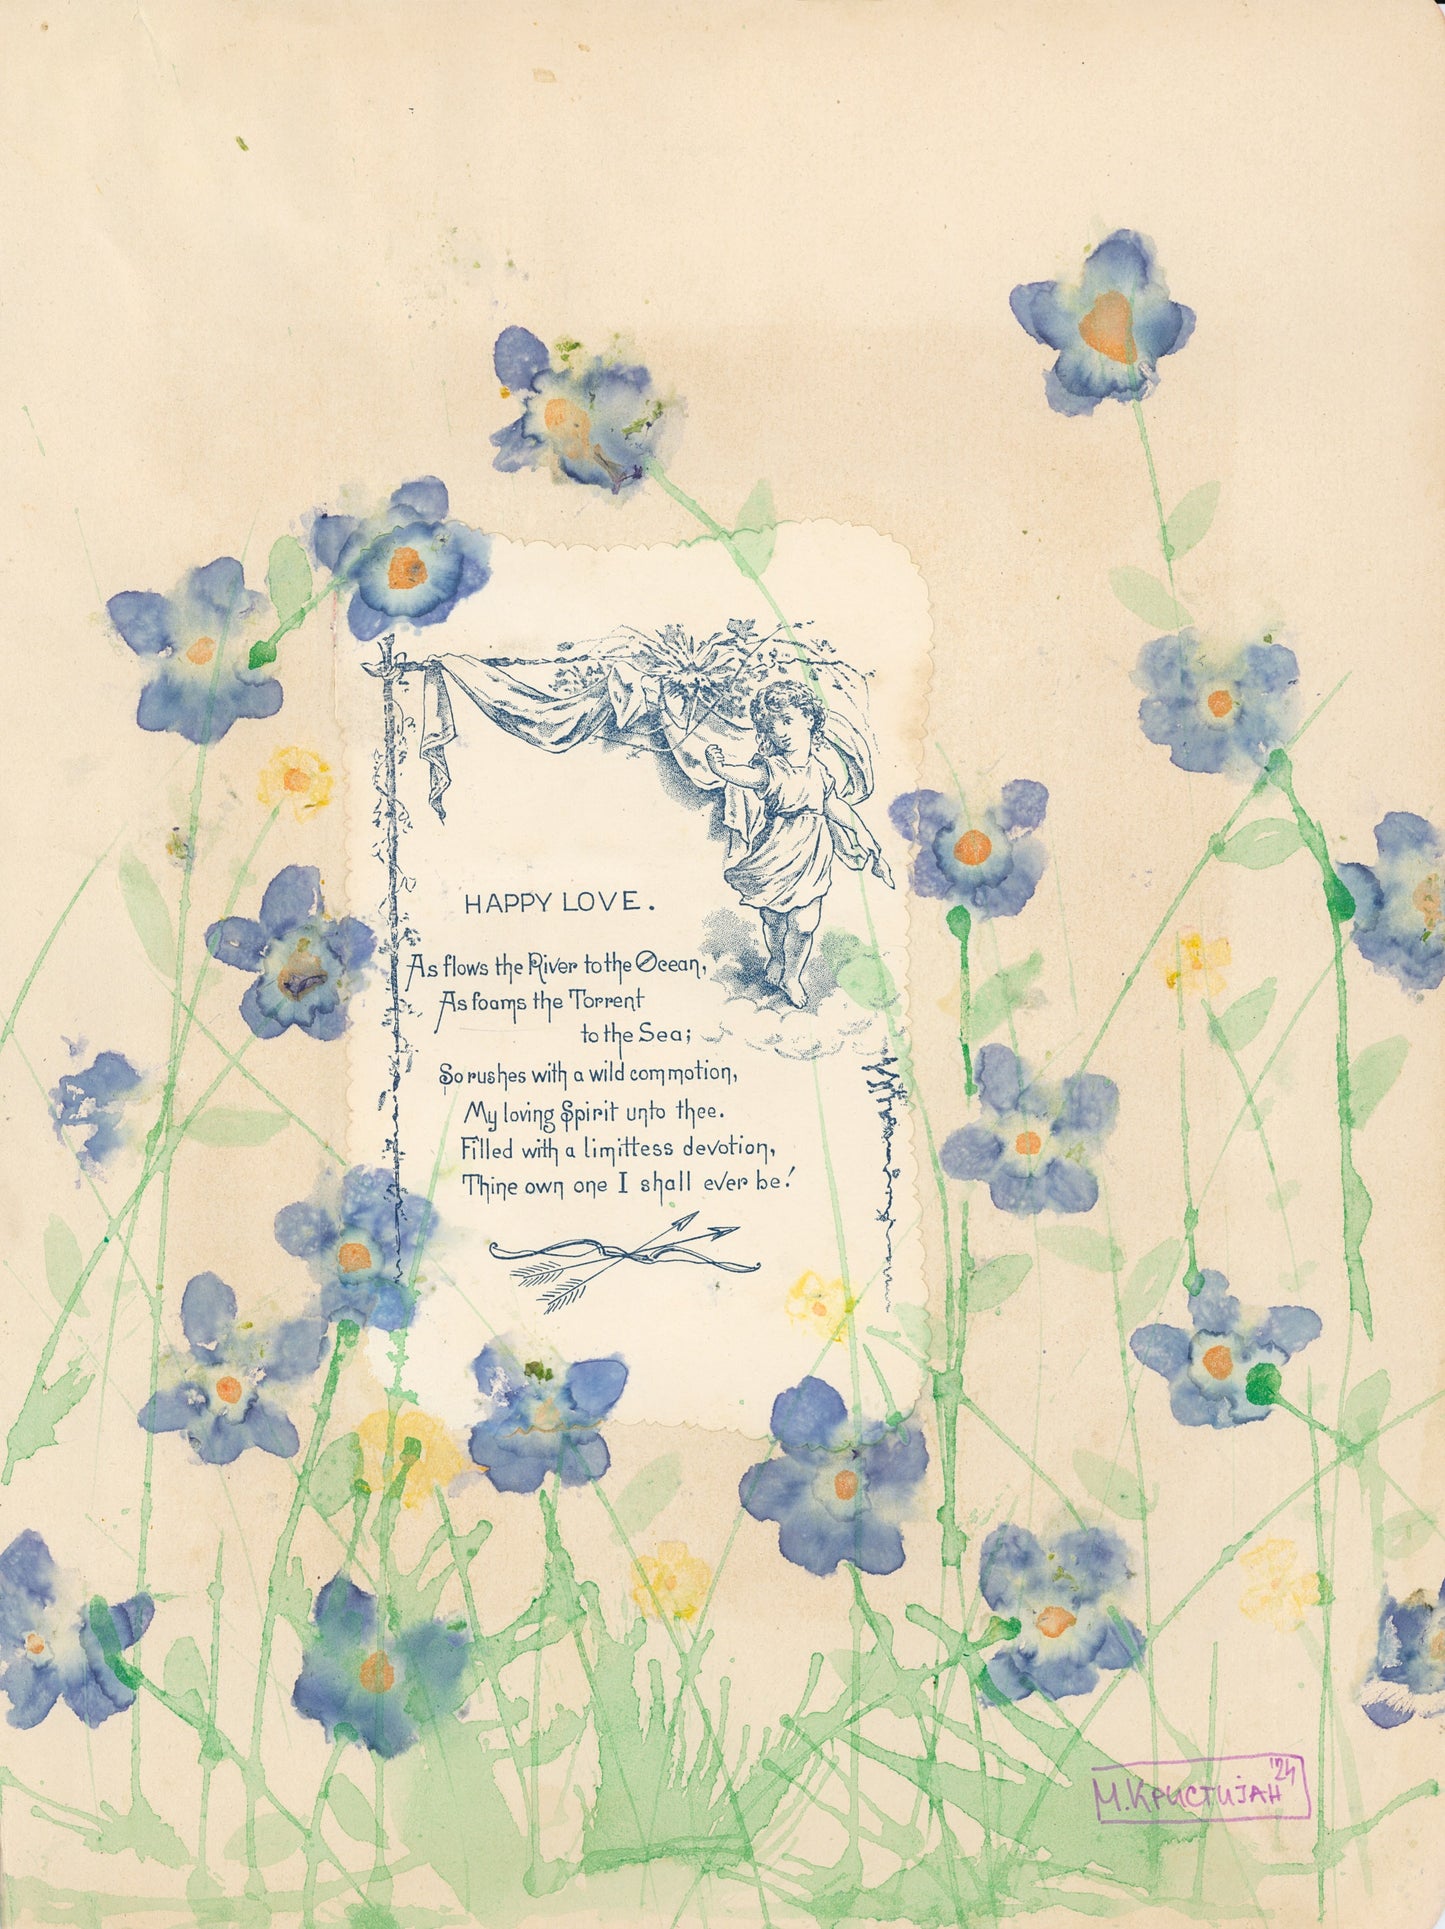 HAPPY LOVE.
As flows the River to the Ocean,
As foams the Torrent
to the Sea;
So rushes with a wild commotion,
My loving Spirit unto thee.
Filled with a limittess devotion,
Thine own one I shall ever be!
М. Кристијан '24